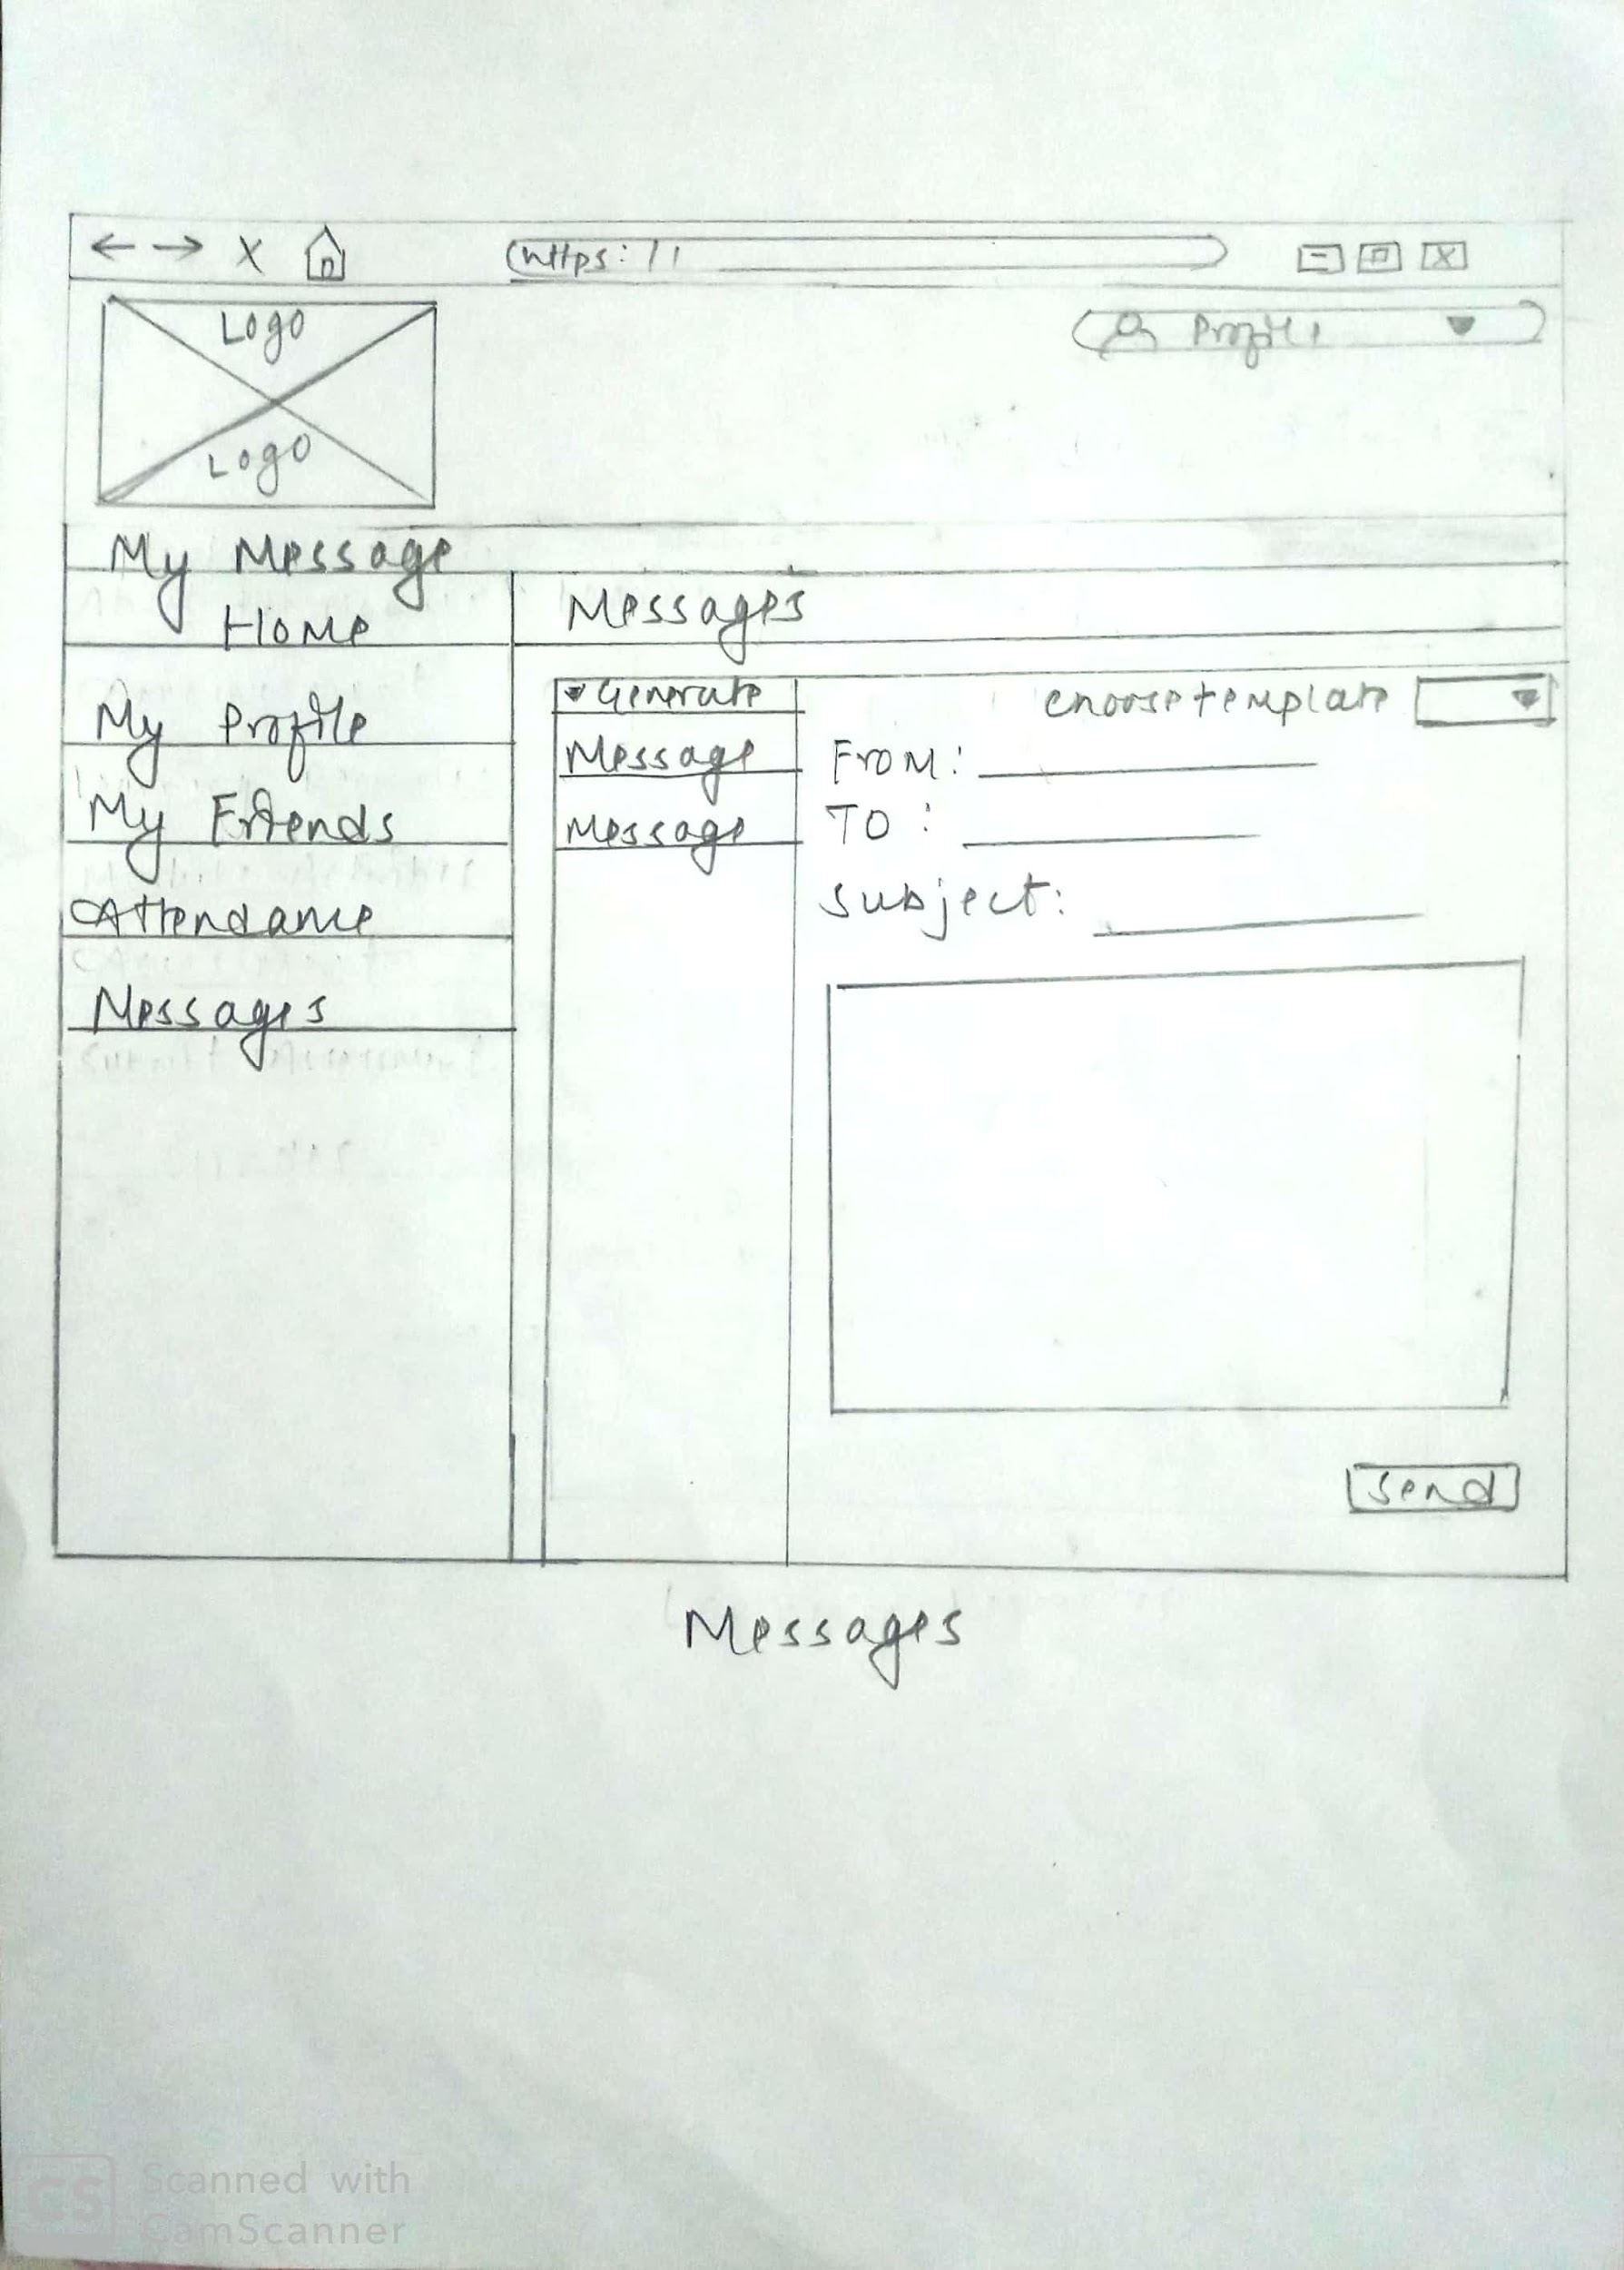 https://
Logo
Profile
Logo
My Message
Home
Messages
My Profile
My Friends
Attendance
Messages
Generate
Message
Message
choose template
From:
TO :
Subject:
Send
Messages
CS
Scanned with
CamScanner